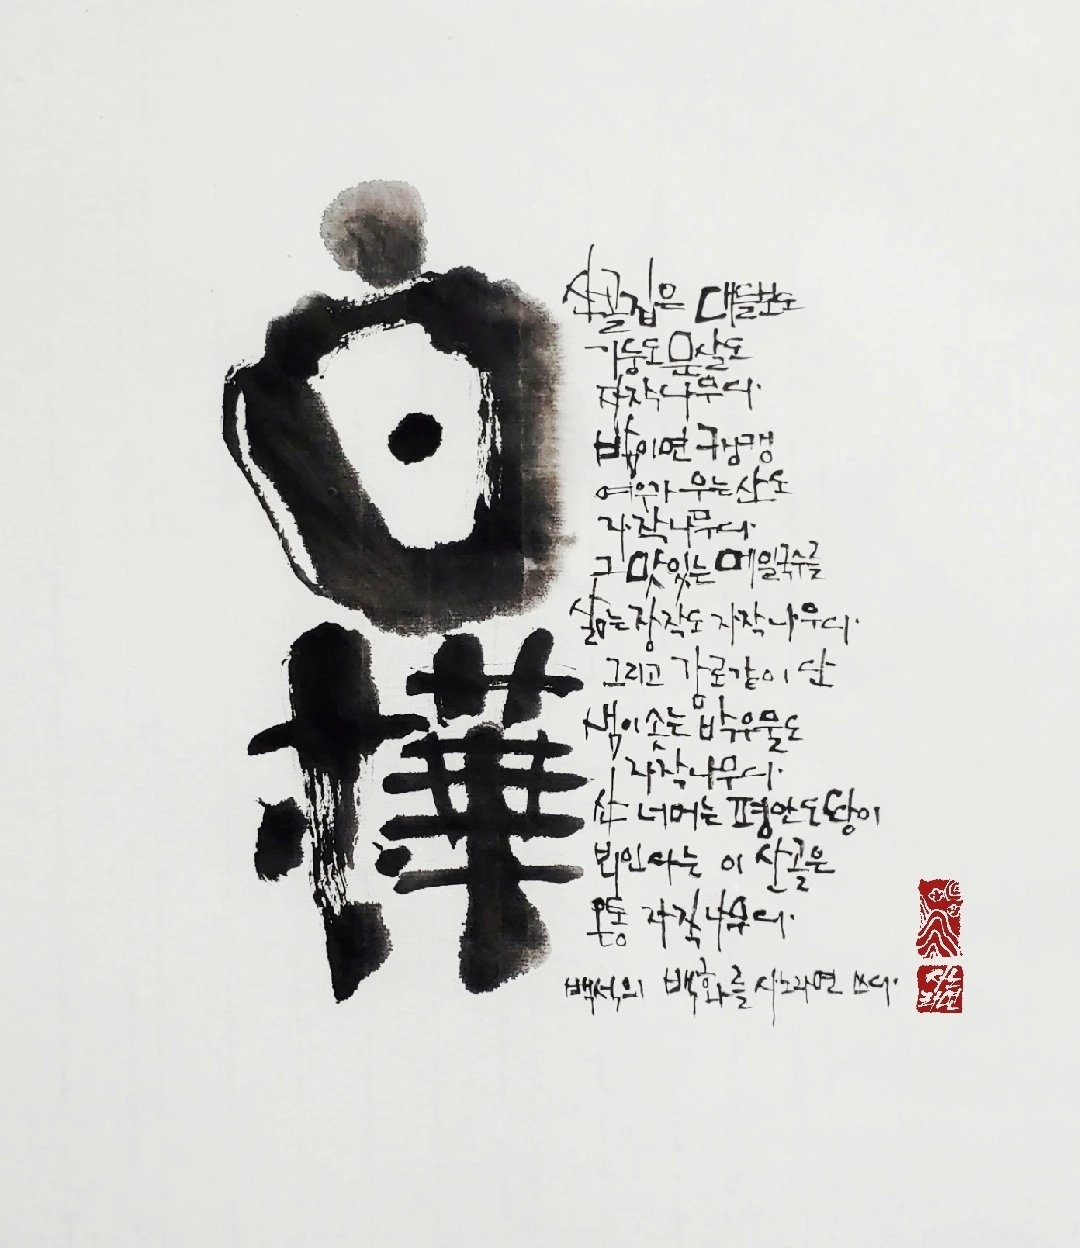 白樺
산골집은 대들보도
기둥도 문살도
자작나무다.
밤이면 캥캥
여우가 우는 산도
자작나무다.
그 맛있는 메밀국수를
삶는 장작도 자작나무다.
그리고 감로같이 단
샘이 솟는 박우물도
자작나무다.
산 너머는 평안도 땅이
뵈인다는 이 산골은
온통 자작나무다.
백석의 백화를 시노라면 쓰다.